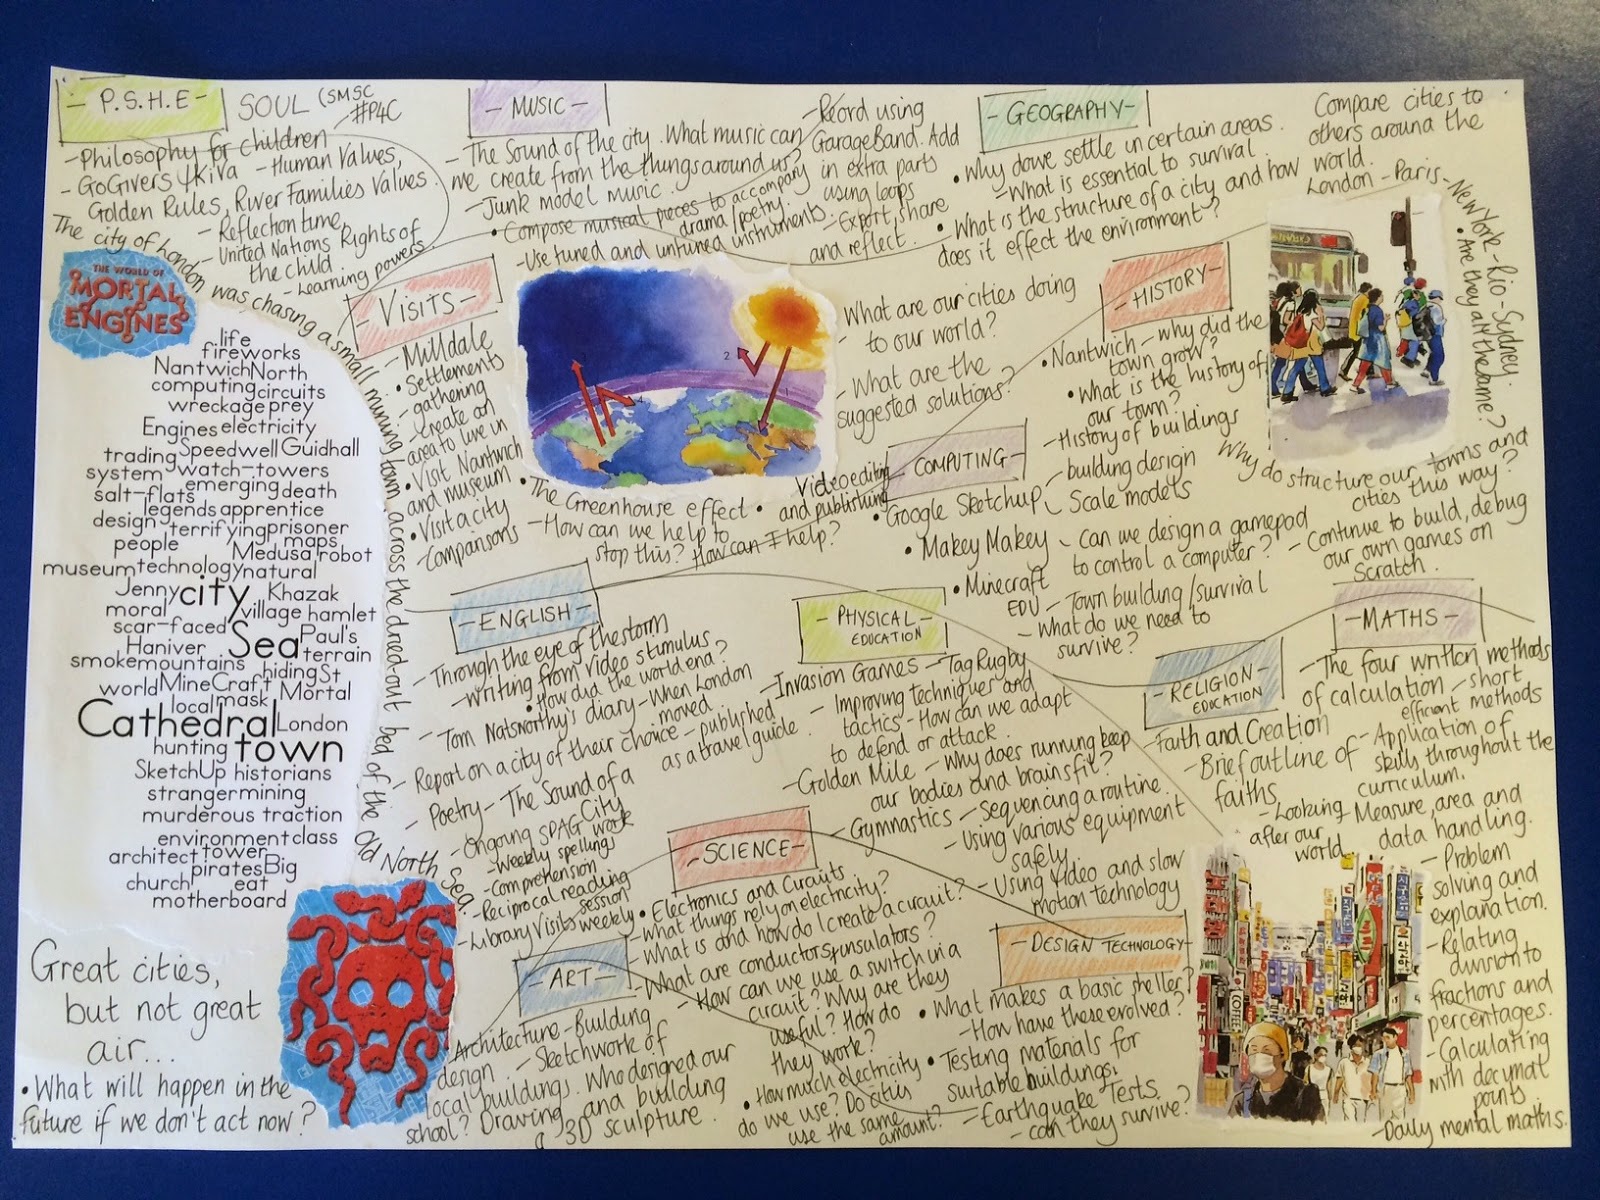 - P.S.H.E -
SOUL (SMSC
- #P4C
- Philosophy for children
- GoGivers / Kiva - Human Values,
Golden Rules, River Families Values.
- Reflection time
- United Nations Rights of
the child
- Learning powers
The city of London was chasing a small mining town across the dried-out bed of the old North Sea.
THE WORLD OF
MORTAL
ENGINES
life
fireworks
Nantwich North
computing circuits
wreckage prey
Engines electricity
trading Speedwell Guidhall
system watch-towers
salt-flats emerging death
legends apprentice
design terrifying prisoner
people maps
Medusa robot
museum technology natural
Jenny city Khazak
moral village hamlet
scar-faced Sea Paul's
Haniver terrain
smoke mountains hiding St
world MineCraft Mortal
local mask
Cathedral London
hunting town
SketchUp historians
stranger mining
murderous traction
environment class
architect tower
pirates Big
church eat
motherboard
Great cities,
but not great
air...
• What will happen in the
future if we don't act now?
- MUSIC -
- The Sound of the city. What music can
we create from the things around us?
- Junk model music.
• Compose musical pieces to accompany
drama / poetry.
- Use tuned and untuned instruments.
- Record using
GarageBand. Add
in extra parts
using loops
- Export, share
and reflect.
- GEOGRAPHY -
• Why do we settle in certain areas.
- What is essential to survival.
• What is the structure of a city and how
does it effect the environment?
Compare cities to
others around the
world.
London - Paris - New York - Rio - Sydney.
• Are they all the same?
- VISITS -
- Milldale
• Settlements
- gathering
- Create an
area to live in
• Visit Nantwich
and museum
• Visit a city
- Comparisons
• The Greenhouse effect •
- How can we help to
stop this? How can I help?
- What are our cities doing
to our world?
- What are the
suggested solutions?
- HISTORY -
• Nantwich - why did the
town grow?
• What is the history of
our town?
- History of buildings
Why do structure our towns and
cities this way?
- COMPUTING -
Video editing
and publishing
• Google Sketchup - building design
Scale models
• Makey Makey - Can we design a gamepad
to control a computer?
• Minecraft
EDU - Town building / survival
- What do we need to
survive?
- Continue to build, debug
our own games on
Scratch.
- ENGLISH -
- Through the eye of the storm
- Writing from video stimulus
• How did the world end?
- Tom Natsworthy's diary - When London
moved
- Report on a city of their choice - published
as a travel guide.
- Poetry - The Sound of a
City
- Ongoing SPAG work
- Weekly spellings
- Comprehension
- Reciprocal reading
session
- Library Visits weekly
- PHYSICAL
EDUCATION -
- Invasion Games - Tag Rugby
- Improving techniques and
tactics - How can we adapt
to defend or attack.
- Golden Mile - Why does running keep
our bodies and brains fit?
- Gymnastics - Sequencing a routine.
- Using various equipment
safely
- Using video and slow
motion technology
- RELIGION
EDUCATION -
- Faith and Creation
- Brief outline of
faiths
- Looking
after our
world
- MATHS -
- The four written methods
of calculation - short
efficient methods
- Application of
skills throughout the
curriculum.
- Measure, area and
data handling.
- Problem
solving and
explanation.
- Relating
division to
fractions and
percentages.
- Calculating
with decimal
points
- Daily mental maths.
- SCIENCE -
• Electronics and Circuits
- What things rely on electricity?
- What is and how do I create a circuit?
- What are conductors / insulators?
- How can we use a switch in a
circuit? Why are they
useful? How do
they work?
• How much electricity
do we use? Do cities
use the same
amount?
- ART -
- Architecture - Building
design - Sketchwork of
local buildings. Who designed our
school? Drawing and building
a 3D sculpture.
- DESIGN TECHNOLOGY -
• What makes a basic shelter?
- How have these evolved?
• Testing materials for
suitable buildings.
- Earthquake Tests
- can they survive?
COFFEE